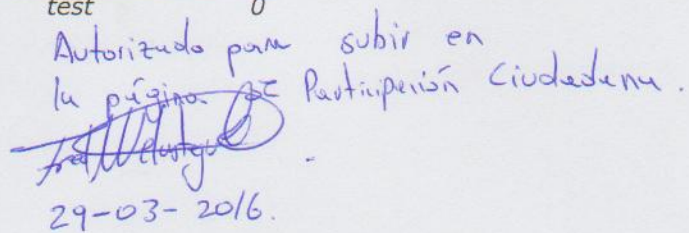 test 0
Autorizado para subir en
la página de Participación Ciudadana.
29-03-2016.